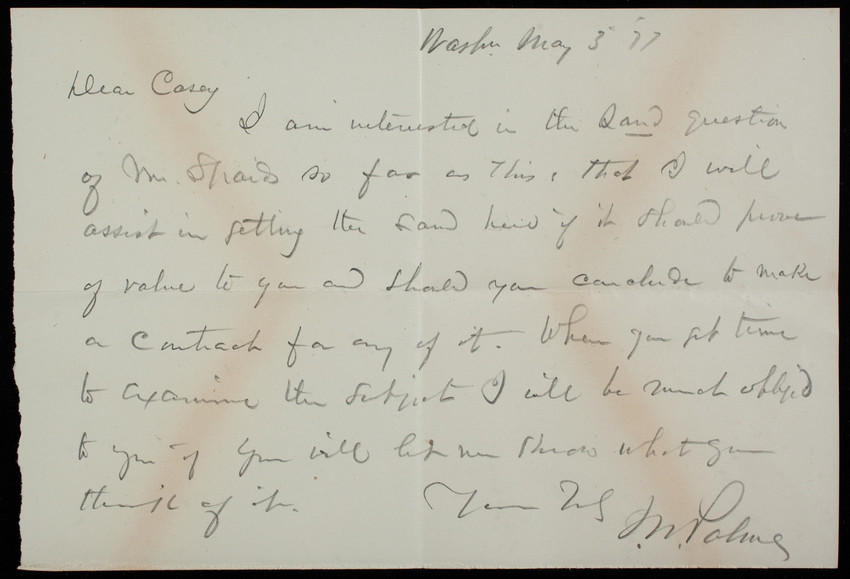 Washn May 3 '77
Dear Casey
I am interested in the Sand question
of Mr. Shaids so far as this, that I will
assist in getting the Sand here if it should prove
of value to you and should you conclude to make
a Contract for any of it. When you get time
to examine the subject I will be much oblig'd
to you if you will let me know what you
think of it.
Yours Trly
Palmer